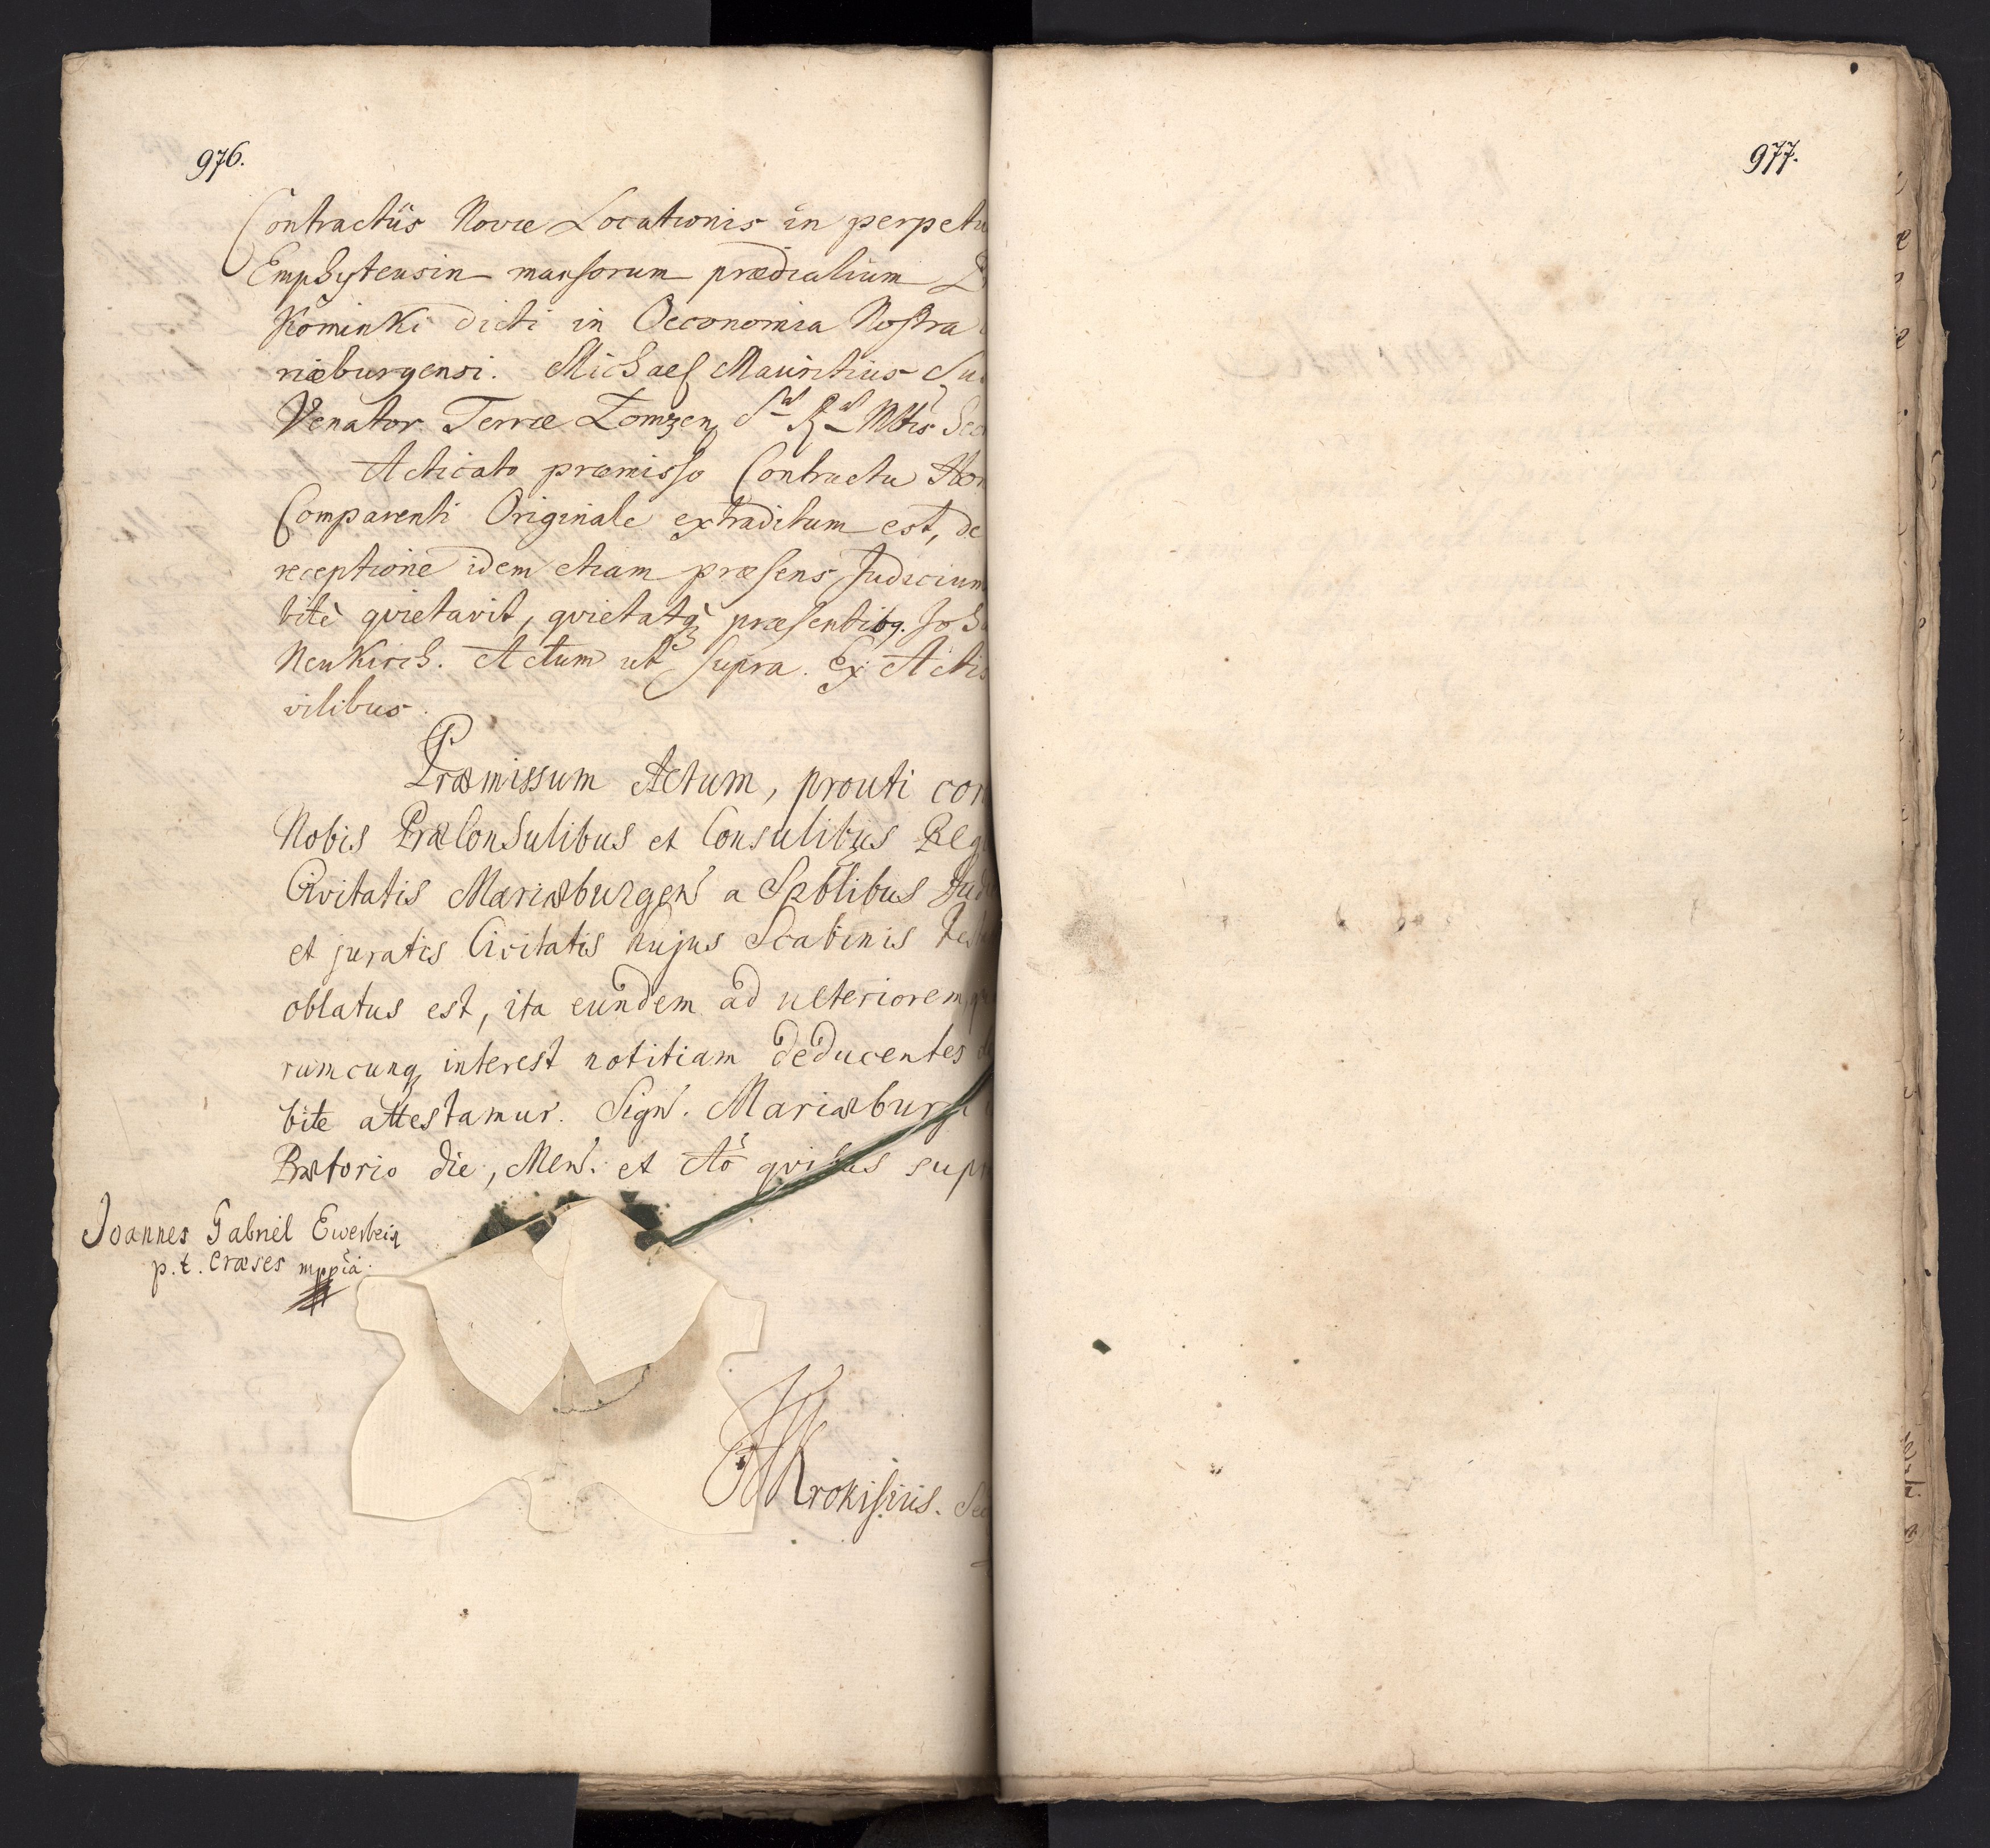 976.
Contractûs Novæ Locationis in perpetu
Emphyteusin mansorum prædialium
Kominki dicti in Oeconomia Nostra
riæburgensi. Michael Mauritius Su
Venator Terræ Łomzen, S R Mttis Sec
Acticato præmisso Contractu Hon
Comparenti Originale extraditum est, de
receptione idem etiam præsens Judicium
bitè qvietavit, qvietatq præsentibq. Joh
Neukirch. Actum ut supra. Ex Actis
vilibus.
Præmissum Actum, prouti cor
Nobis PræConsulibus et Consulibus Reg
Civitatis Mariæburgen a Spblibus Jud
et juratis Civitatis hujus Scabinis
oblatus est, ita eundem ad ulteriorem, qu
rumcunq interest notitiam deducentes de
bite attestamur. Sign. Mariæburgi
Prætorio die, Men. et Ao qvibus supr
Joannes Gabriel Ewerbein
p. t. Præses mppia.
Krokisius. Sec
977.